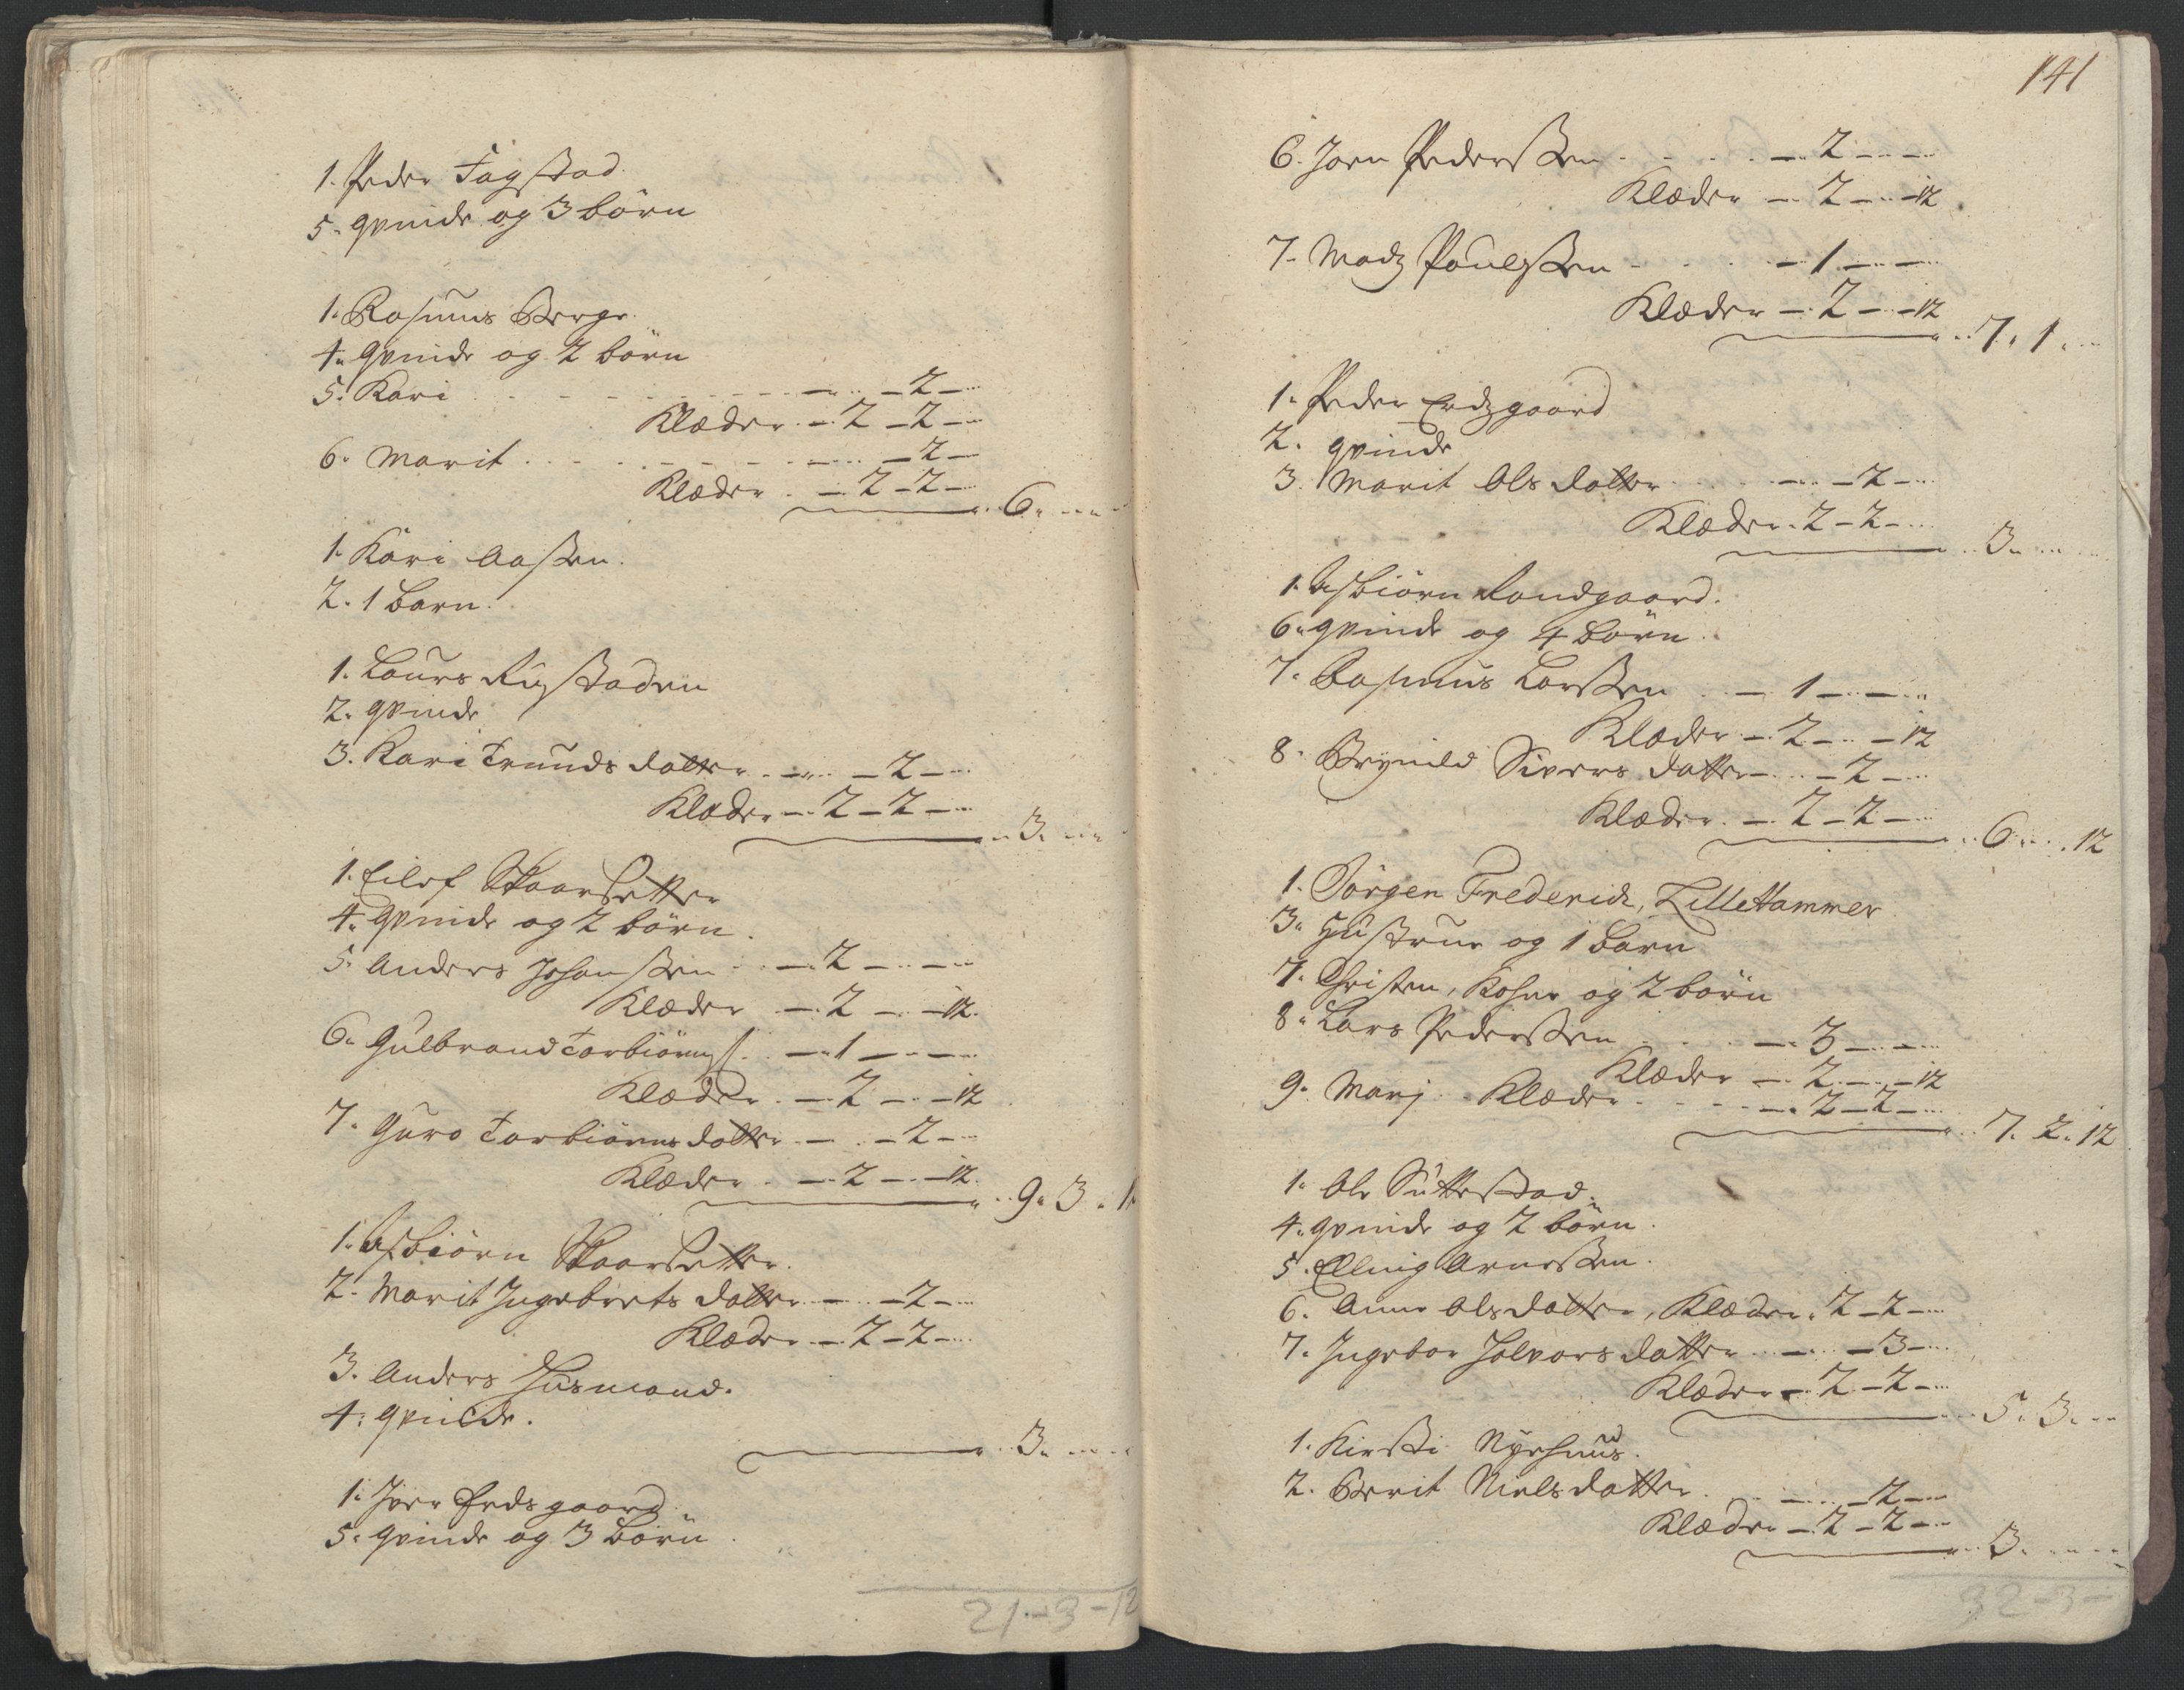 1. Peder Fagstad.
5. qvinde og 3 børn
1. Rasmus Berge.
4. qvinde og 2 børn
5. Kari - 2 -
Klæder - 2 - 2 -
6. Marit - 2 -
Klæder - 2 - 2 -
6.
1. Kari Aasen.
2. 1 barn.
1. Laurs Rugstaden
2. qvinde
3. Kari Trunds datter - 2 -
Klæder - 2 - 2 -
3.
1. Eilef Skaarsetter
4. qvinde og 2 børn.
5. Anders Johansen - 2 -
Klæder - 2 - 12.
6. Gulbrand Torbiørns. - 1 -
Klæder - 2 - 12
7. Guro Torbiørnsdatter - 2 -
Klæder - 2 - 12.
9. 3. 1
1. Asbiørn Skaarsetter.
2. Marit Ingebrets datter - 2 -
Klæder - 2 - 2 -
3. Anders Husmand.
4. qvinde.
3.
1. Joen Erdsgaard.
5. qvinde og 3 børn.
21-3-12
141
6. Joen Pedersen - 2 -
Klæder - 2 - 12.
7. Madz Poulsen - 1 -
Klæder - 2 - 12
7. 1.
1. Peder Erdzgaard
2. qvinde
3. Marit Ols datter - 2 -
Klæder - 2 - 2 -
3.
1. Asbiørn Randgaard.
6. qvinde og 4 børn.
7. Rasmus Larsen - 1 -
Klæder - 2 - 12
8. Brynild Sivers datter - 2 -
Klæder - 2 - 2 -
6. 12
1. Jørgen Frederich, Lillehammer
3. Hustrue og 1 barn
7. Christen, Kone og 2 børn
8. Lars Pedersen - 3 -
Klæder - 2 - 12
9. Marj. Klæder - 2 - 2 -
7. 2. 12
1. Ole Suttestad.
4. qvinde og 2 børn.
5. Elling Arnesen.
6. Anne Olsdatter, Klæder. 2 - 2 -
7. Ingebor Halvors datter - 3 -
Klæder - 2 - 2 -
5. 3.
1. Kirsti Nyehuus.
2. Berit Nielsdatter - 2 -
Klæder - 2 - 2 -
3.
32-3-